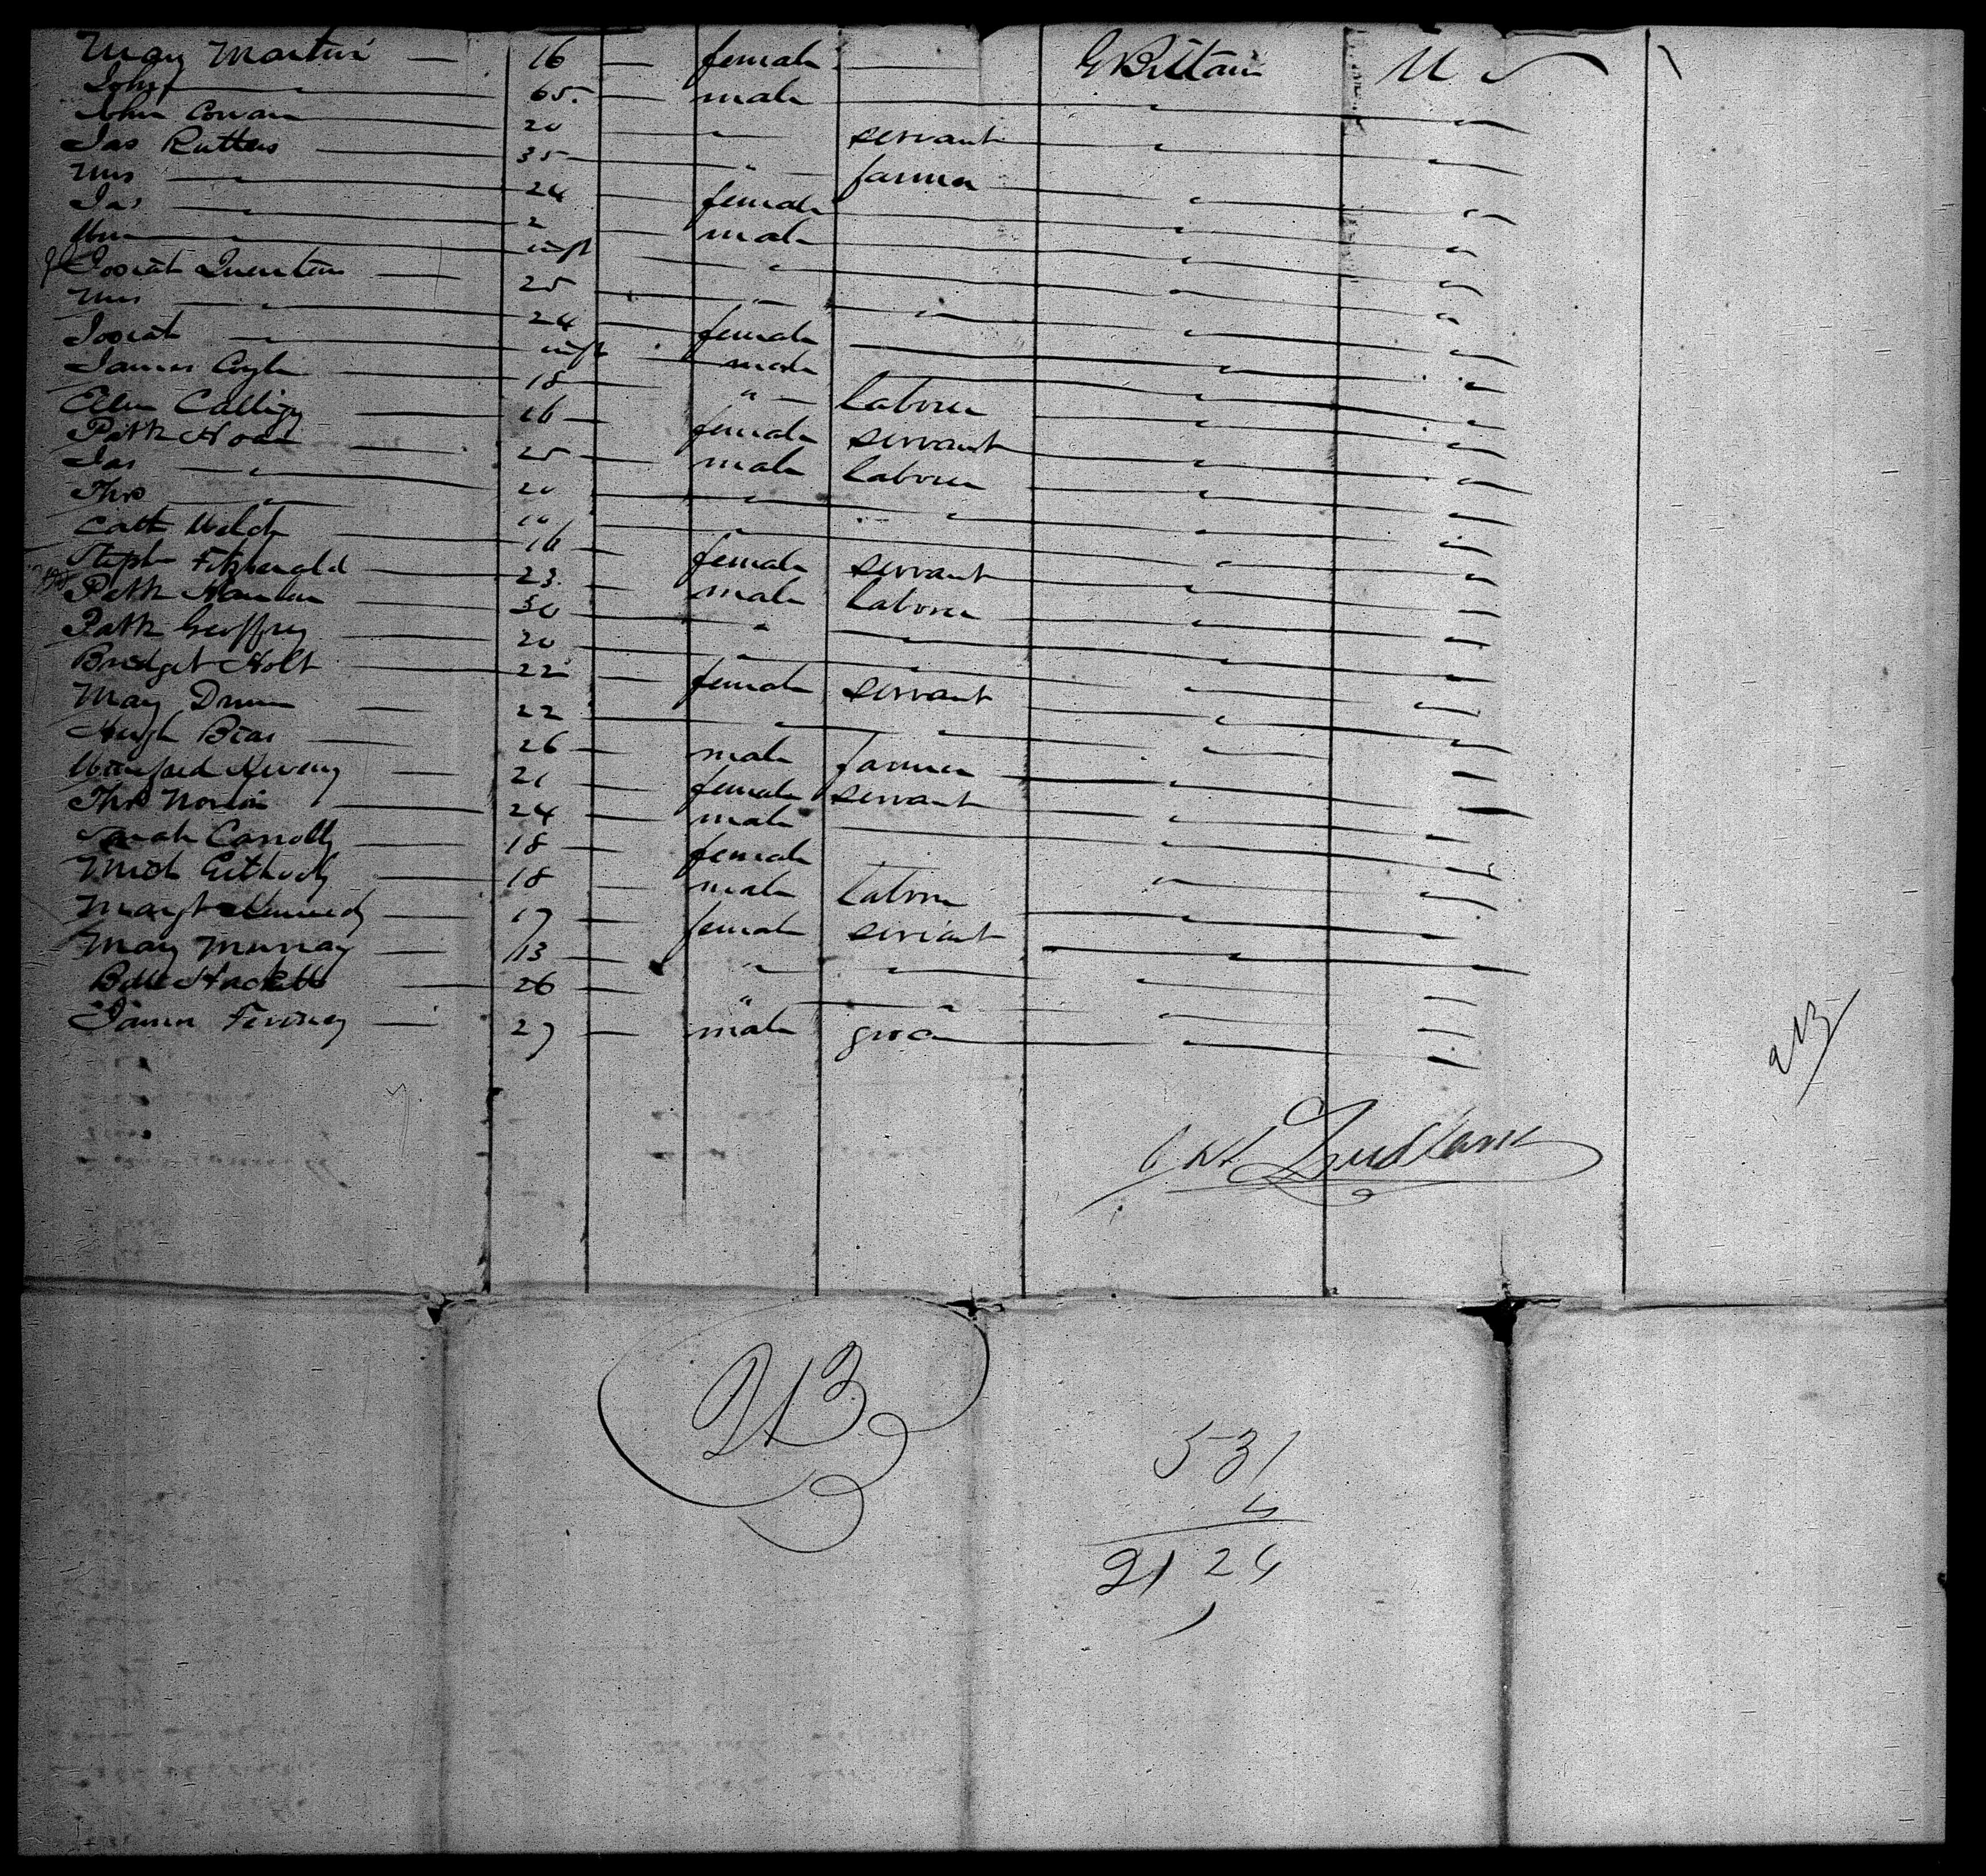 Mary Martin — 16 — female — G Brittain U S
John " 65 — male " "
John Cowan 20 " servant " "
Jas Rutters 35 " farmer " "
Mrs " 24 female " "
Jas " 2 male " "
Wm " inft " " "
Josiah 25 " " " "
Mrs " 24 female " "
Josiah " inft male " "
James Coyle 18 " laborer " "
Ellen 16 female servant " "
Patk 25 male laborer " "
Jas " 20 " " " "
Thos " " " " "
Cath Welch 16 female servant " "
Steph Fitzgerald 23 male laborer " "
Patk Hanlon 30 " " " "
Patk Geoffrey 20 " " " "
Bridget Holt 22 female servant " "
Mary 22 " " " "
Hugh 26 male farmer " "
Winifred 21 female servant " "
Thos 24 male " "
Sarah Carrolly 18 female
Mich 18 male labor " "
Margt Kennedy 17 female servant " "
Mary Murray 13 " " " "
Hackett 26 " " " "
James 27 male grocer " "
213
213
531
4
2124